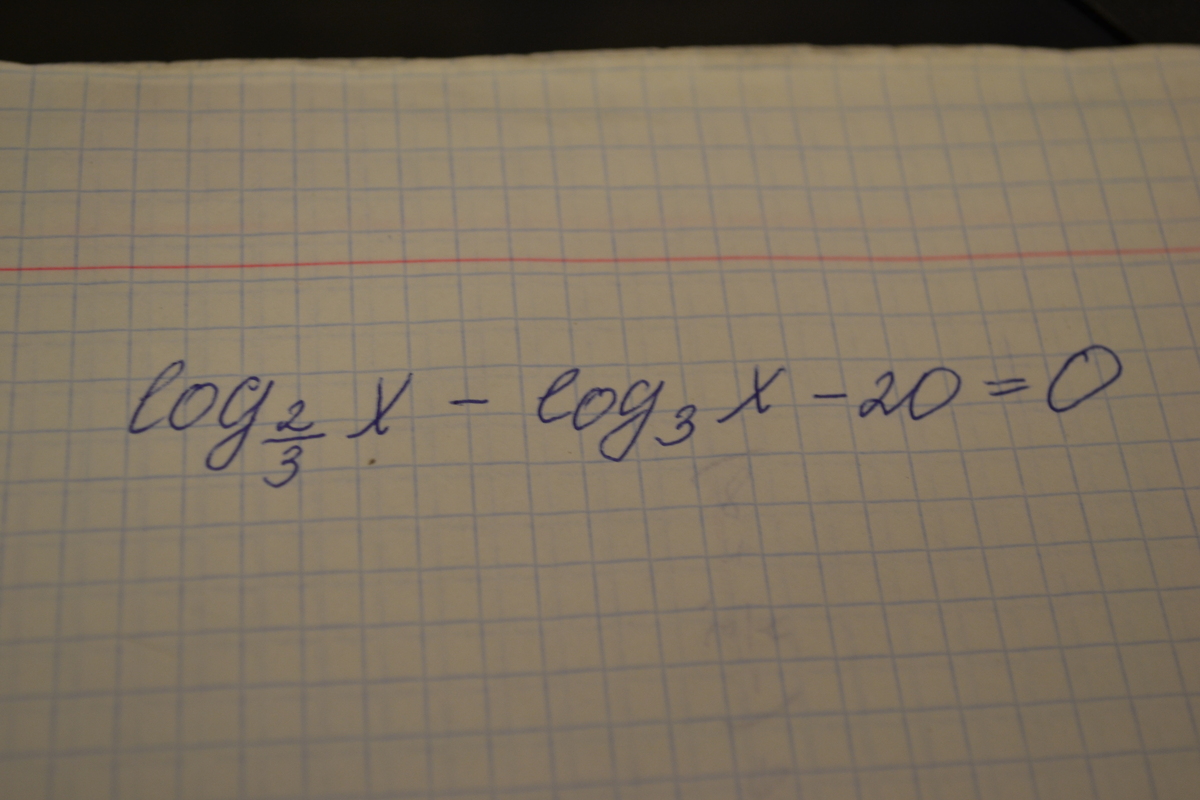 log_{\frac{2}{3}} x - log_3 x - 20 = 0